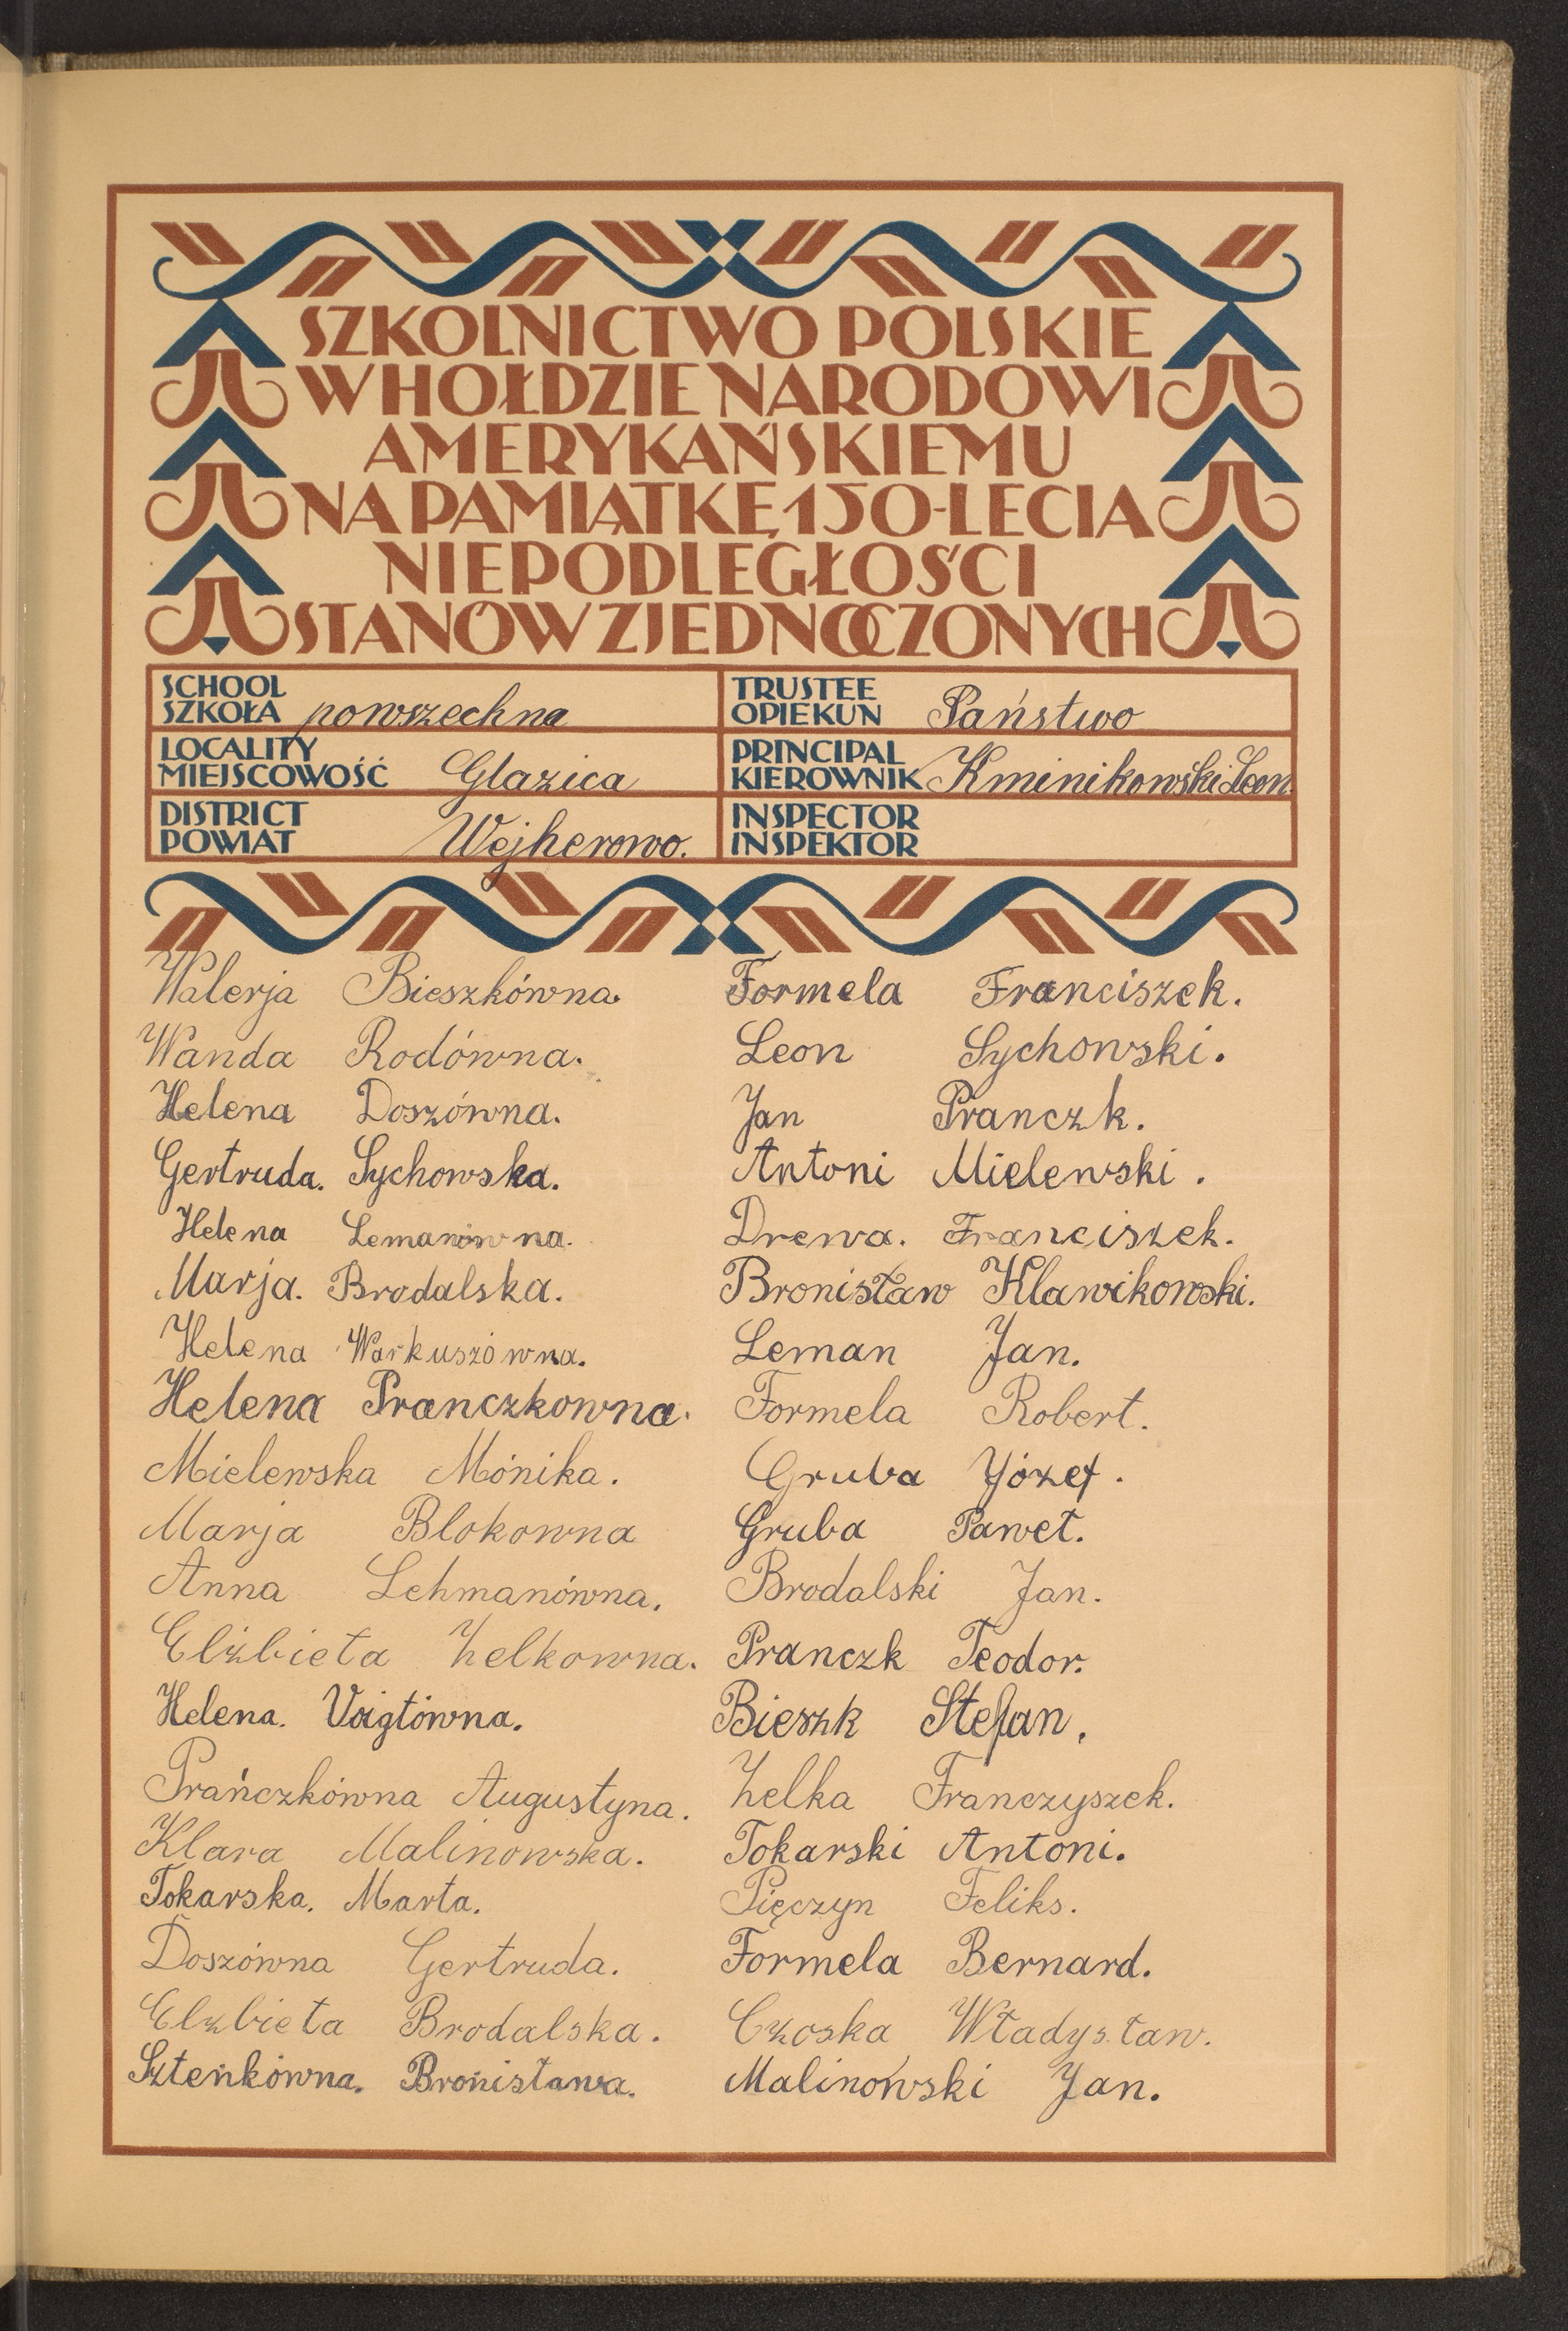 SZKOLNICTWO POLSKIE
W HOŁDZIE NARODOWI
AMERYKAŃSKIEMU
NA PAMIĄTKĘ 150-LECIA
NIEPODLEGŁOŚCI
STANÓW ZJEDNOCZONYCH
SCHOOL
SZKOŁA powszechna
TRUSTEE
OPIEKUN Państwo
LOCALITY
MIEJSCOWOŚĆ Glazica
PRINCIPAL
KIEROWNIK Kminikowski Leon.
DISTRICT
POWIAT Wejherowo.
INSPECTOR
INSPEKTOR
Walerja Bieszkówna.
Wanda Rodówna.
Helena Doszówna.
Gertruda. Sychowska.
Helena Lemanówna.
Marja. Brodalska.
Helena Warkuszówna.
Helena Pranczkowna.
Mielewska Mónika.
Marja Blokowna
Anna Lehmanówna.
Elżbieta Zelkowna.
Helena. Voigtówna.
Prańczkówna Augustyna.
Klara Malinowska.
Tokarska. Marta.
Doszówna Gertruda.
Elzbieta Brodalska.
Sztenkówna. Bronisława.
Formela Franciszek.
Leon Sychowski.
Jan Pranczk.
Antoni Mielewski.
Drewa. Franciszek.
Bronisław Klawikowski.
Leman Jan.
Formela Robert.
Gruba Józef.
Gruba Paweł.
Brodalski Jan.
Pranczk Teodor.
Bieszk Stefan.
Zelka Franczyszek.
Tokarski Antoni.
Pięczyn Feliks.
Formela Bernard.
Czoska Władysław.
Malinowski Jan.